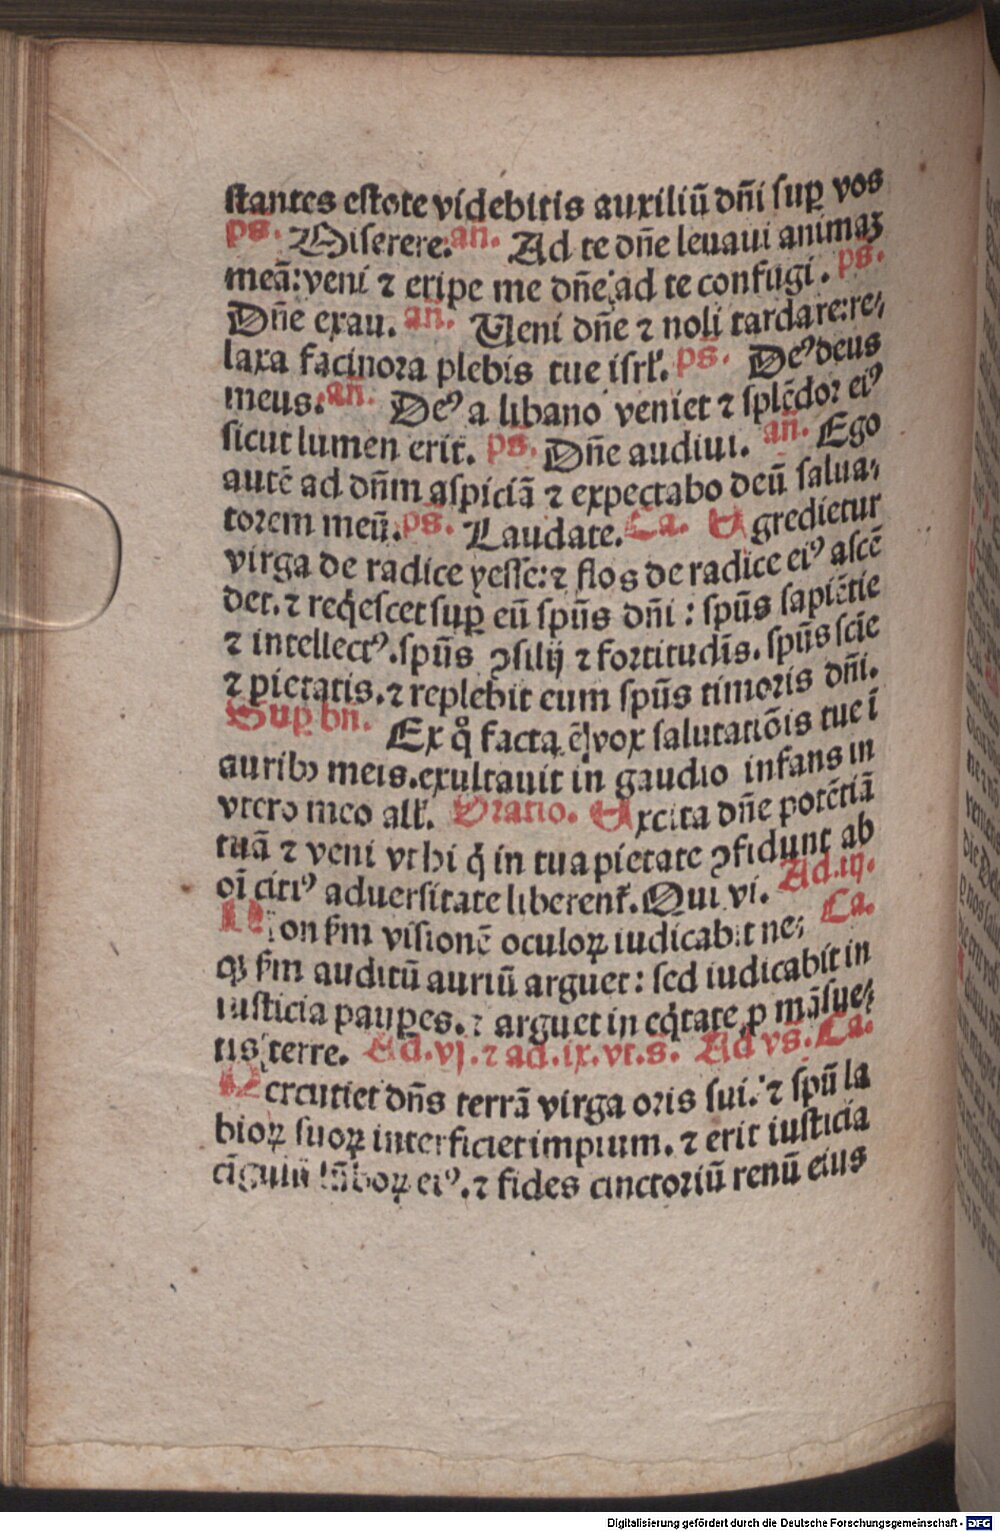 stantes estote videbitis auxiliū dn̄i suꝑ vos
ps. Miserere. an̄. Ad te dn̄e levaui animaꝫ
meā: veni ⁊ eripe me dn̄e ad te confugi. ps.
Dn̄e exau. an̄. Ueni dn̄e ⁊ noli tardare: re⸗
laxa facinora plebis tue isrł. ps. Deꝰ deus
meus. an̄. Deꝰ a libano veniet ⁊ splēdor eiꝰ
sicut lumen erit. ps. Dn̄e audiui. an̄. Ego
autē ad dn̄m aspiciā ⁊ expectabo deū salua⸗
torem meū. ps. Laudate. Ca. Egredietur
virga de radice yesse: ⁊ flos de radice eiꝰ ascē
det. ⁊ reqͥescet suꝑ eū spūs dn̄i: spūs sapiētie
⁊ intellectꝰ. spūs ꝯsilij ⁊ fortitudīs. spūs scīe
⁊ pietatis. ⁊ replebit eum spūs timoris dn̄i.
Suꝑ bn̄. Ex qͦ facta ē vox salutatiōis tue ī
auribꝰ meis. exultauit in gaudio infans in
vtero meo alł. Oratio. Excita dn̄e potētiā
tuā ⁊ veni vt hi qͥ in tua pietate ꝯfidunt ab
oī citiꝰ aduersitate liberent᷑. Qui vi. Ad.iij.
Non ẜm visionē oculoꝝ iudicabit ne⸗ Ca.
qꝫ ẜm auditū auriū arguet: sed iudicabit in
iusticia pauꝑes. ⁊ arguet in eqͥtate ꝓ māsue⸗
tis terre. Ad.vj. ⁊ ad.ix.vt.s. Ad vs. Ca.
Percutiet dn̄s terrā virga oris sui. ⁊ spū la
bioꝝ suoꝝ interficiet impium. ⁊ erit iusticia
cīgulu lūboꝝ eiꝰ. ⁊ fides cinctoriū renū eius
Digitalisierung gefördert durch die Deutsche Forschungsgemeinschaft - DFG